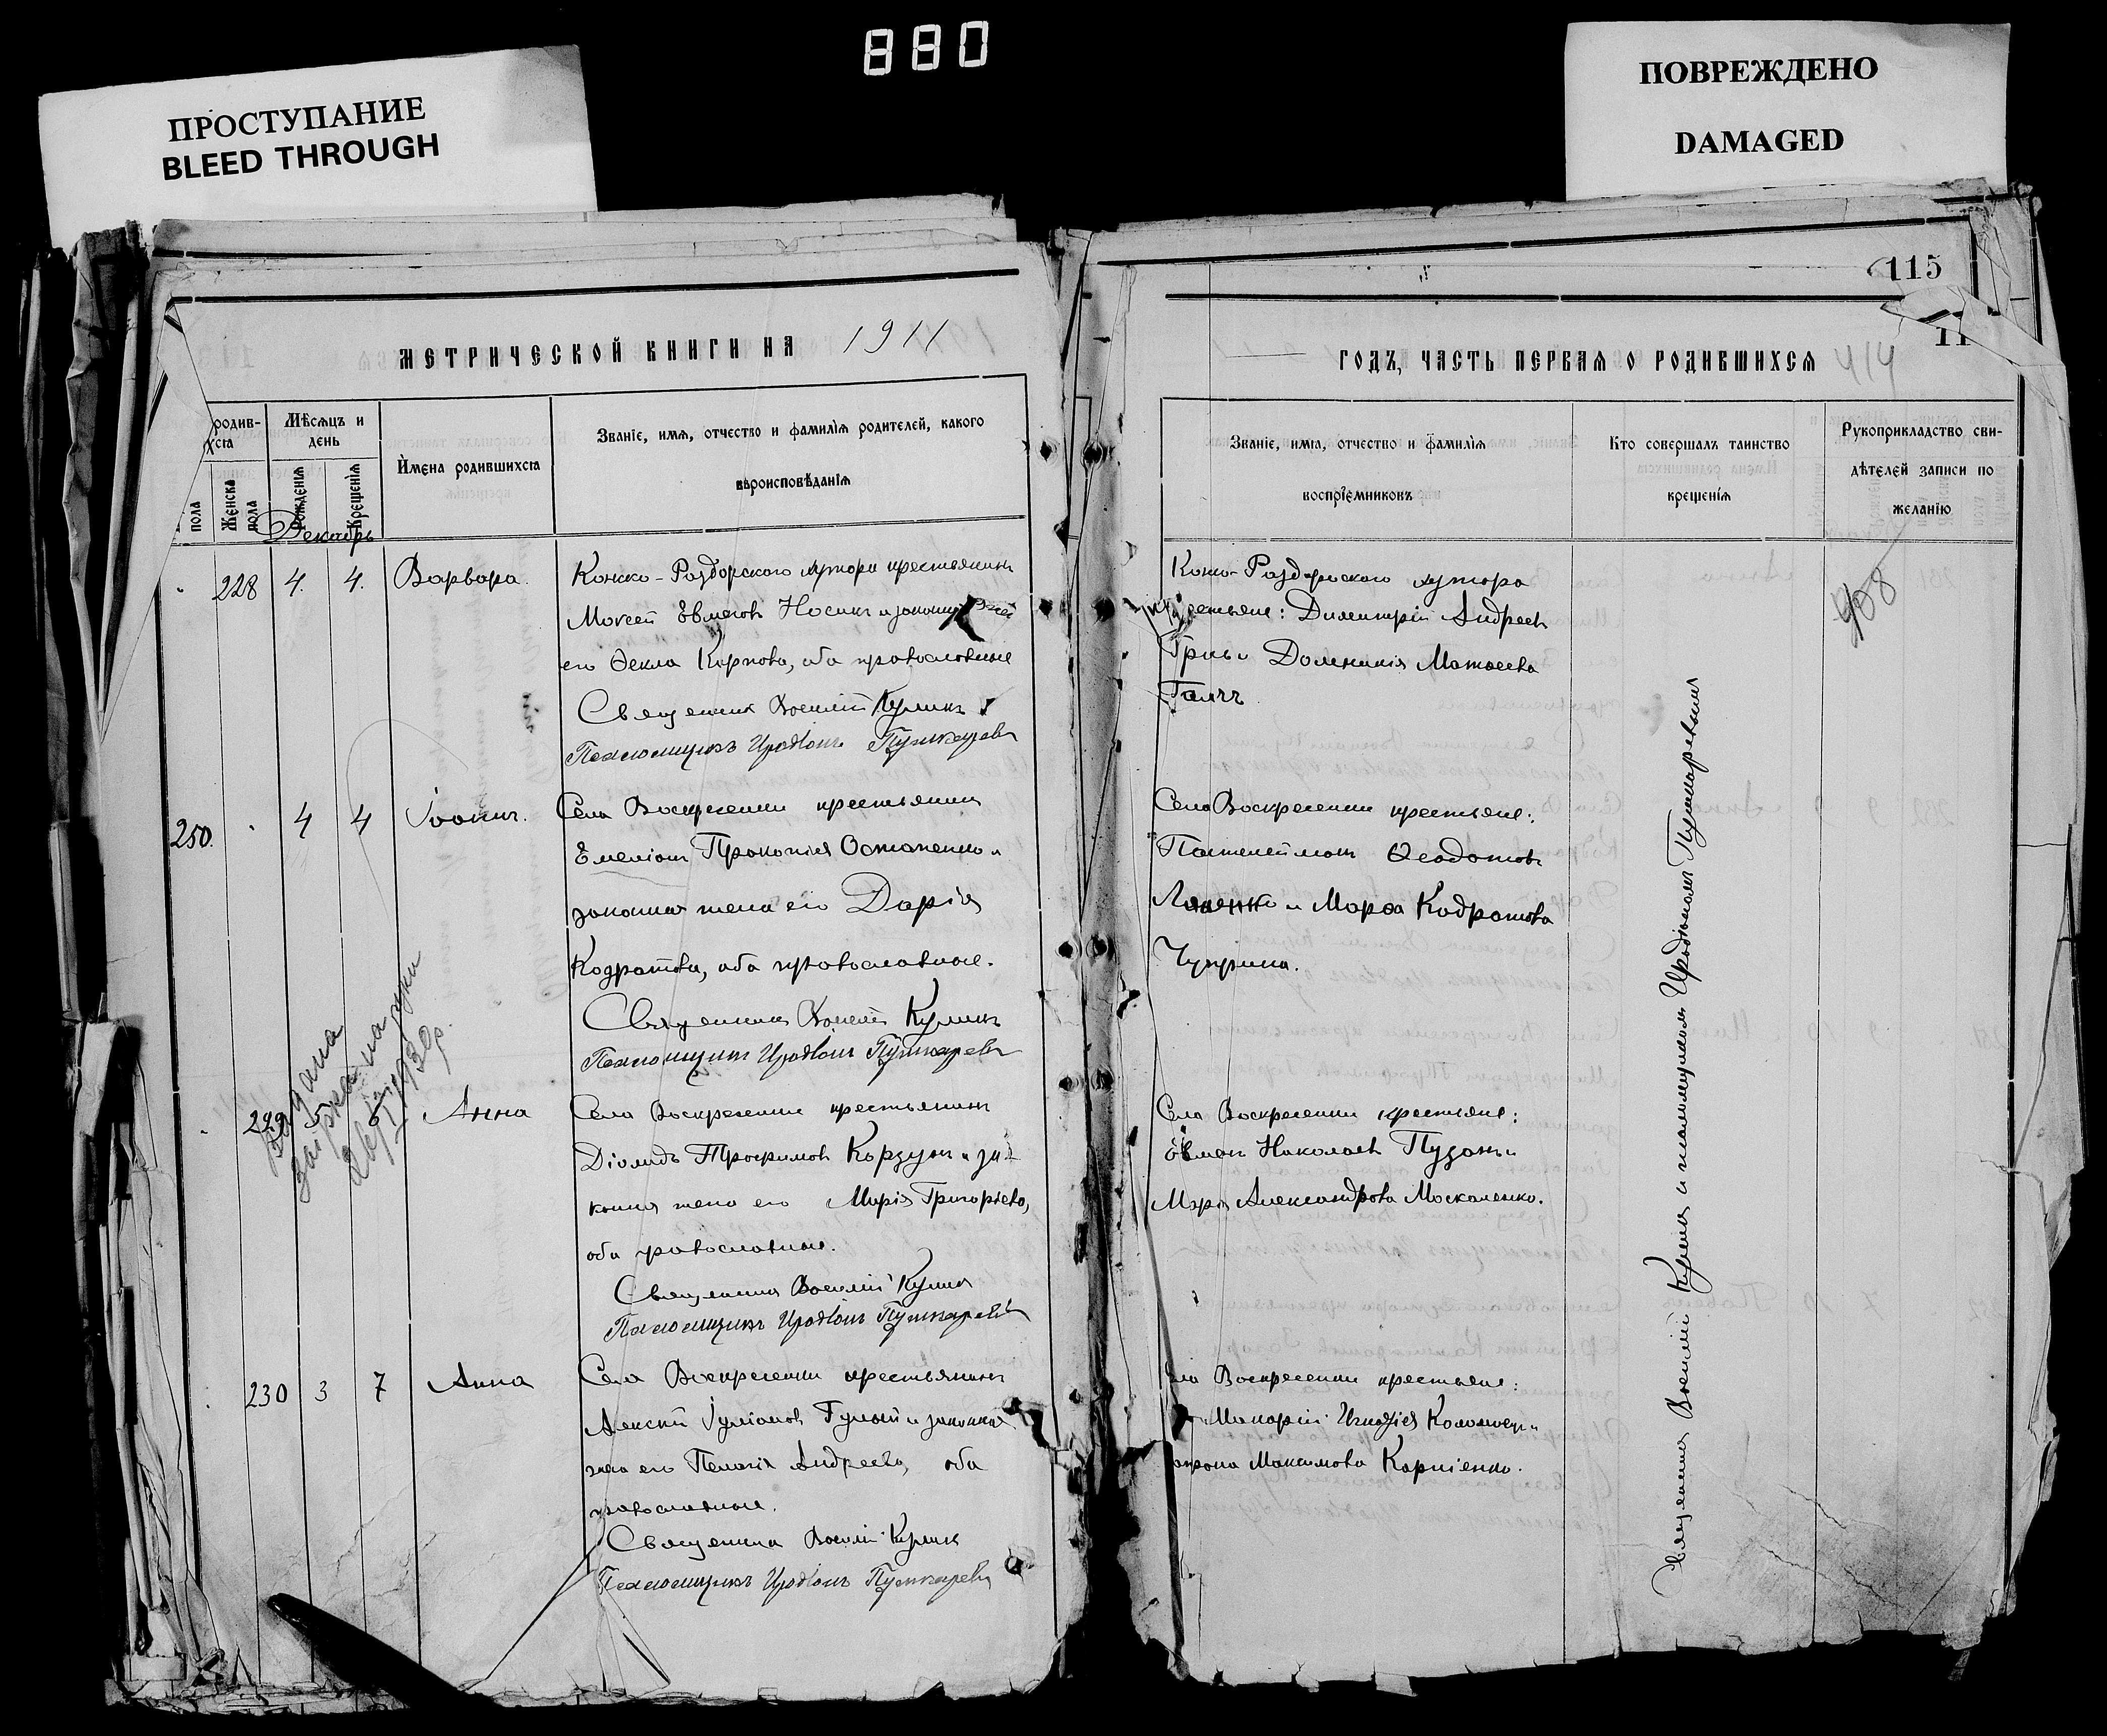 880
ПРОСТУПАНИЕ
BLEED THROUGH
ПОВРЕЖДЕНО
DAMAGED
115
11
МЕТРИЧЕСКОЙ КНИГИ НА 1911
ГОДЪ, ЧАСТЬ ПЕРВАЯ О РОДИВШИХСЯ 414
родив-
хся
Мѣсяцъ и
день
пола
Женска
пола
Рожденія
Крещенія
Имена родившихся
Званіе, имя, отчество и фамилія родителей, какого
вѣроисповѣданія
Званіе, имя, отчество и фамилія
воспріемниковъ
Кто совершалъ таинство
крещенія
Рукоприкладство сви-
дѣтелей записи по
желанію
Декабрь
228 4. 4. Варвара.
Конско-Раздорского хутора крестьянинъ
Моисей Евменовъ Носикъ и законная
его Ѳекла Карпова, оба православные
Священникъ Василій Куликъ
Псаломщикъ Иродіонъ Пушкаревъ
Конско-Раздорского хутора
крестьяне: Димитрій Андреевъ
и Домникія Матѳеева
408
250. 4 4 Іоаннъ.
Села Воскресенки крестьянинъ
Емеліанъ Прокопіевъ Остапенко и
законная жена его Дарія
Кодратова, оба православные.
Священникъ Василій Куликъ
Псаломщикъ Иродіонъ Пушкаревъ
Села Воскресенки крестьяне:
Пантелеймонъ Ѳеодотовъ
и Марѳа Кодратова
Чуприна.
Выдана
на руки
1930 р.
229 5 6 Анна
Села Воскресенки крестьянинъ
Діомидъ Трофимовъ Корзунъ и за-
конная жена его Марія Григорьева,
оба православные.
Священникъ Василій Куликъ
Псаломщикъ Иродіонъ Пушкаревъ
Села Воскресенки крестьяне:
Евменъ Николаевъ Пузанъ и
Марія Александрова Москаленко.
230 3 7 Анна
Села Воскресенки крестьянинъ
Алексій Іуліановъ Гулый и законная
жена его Пелагія Андреева, оба
православные.
Священникъ Василій Куликъ
Псаломщикъ Иродіонъ Пушкаревъ
Села Воскресенки крестьяне:
Макарій Игнатіевъ Коломоецъ и
Максимова Карпіенко.
Священникъ Василій Куликъ и псаломщикъ Иродіонъ Пушкаревъ